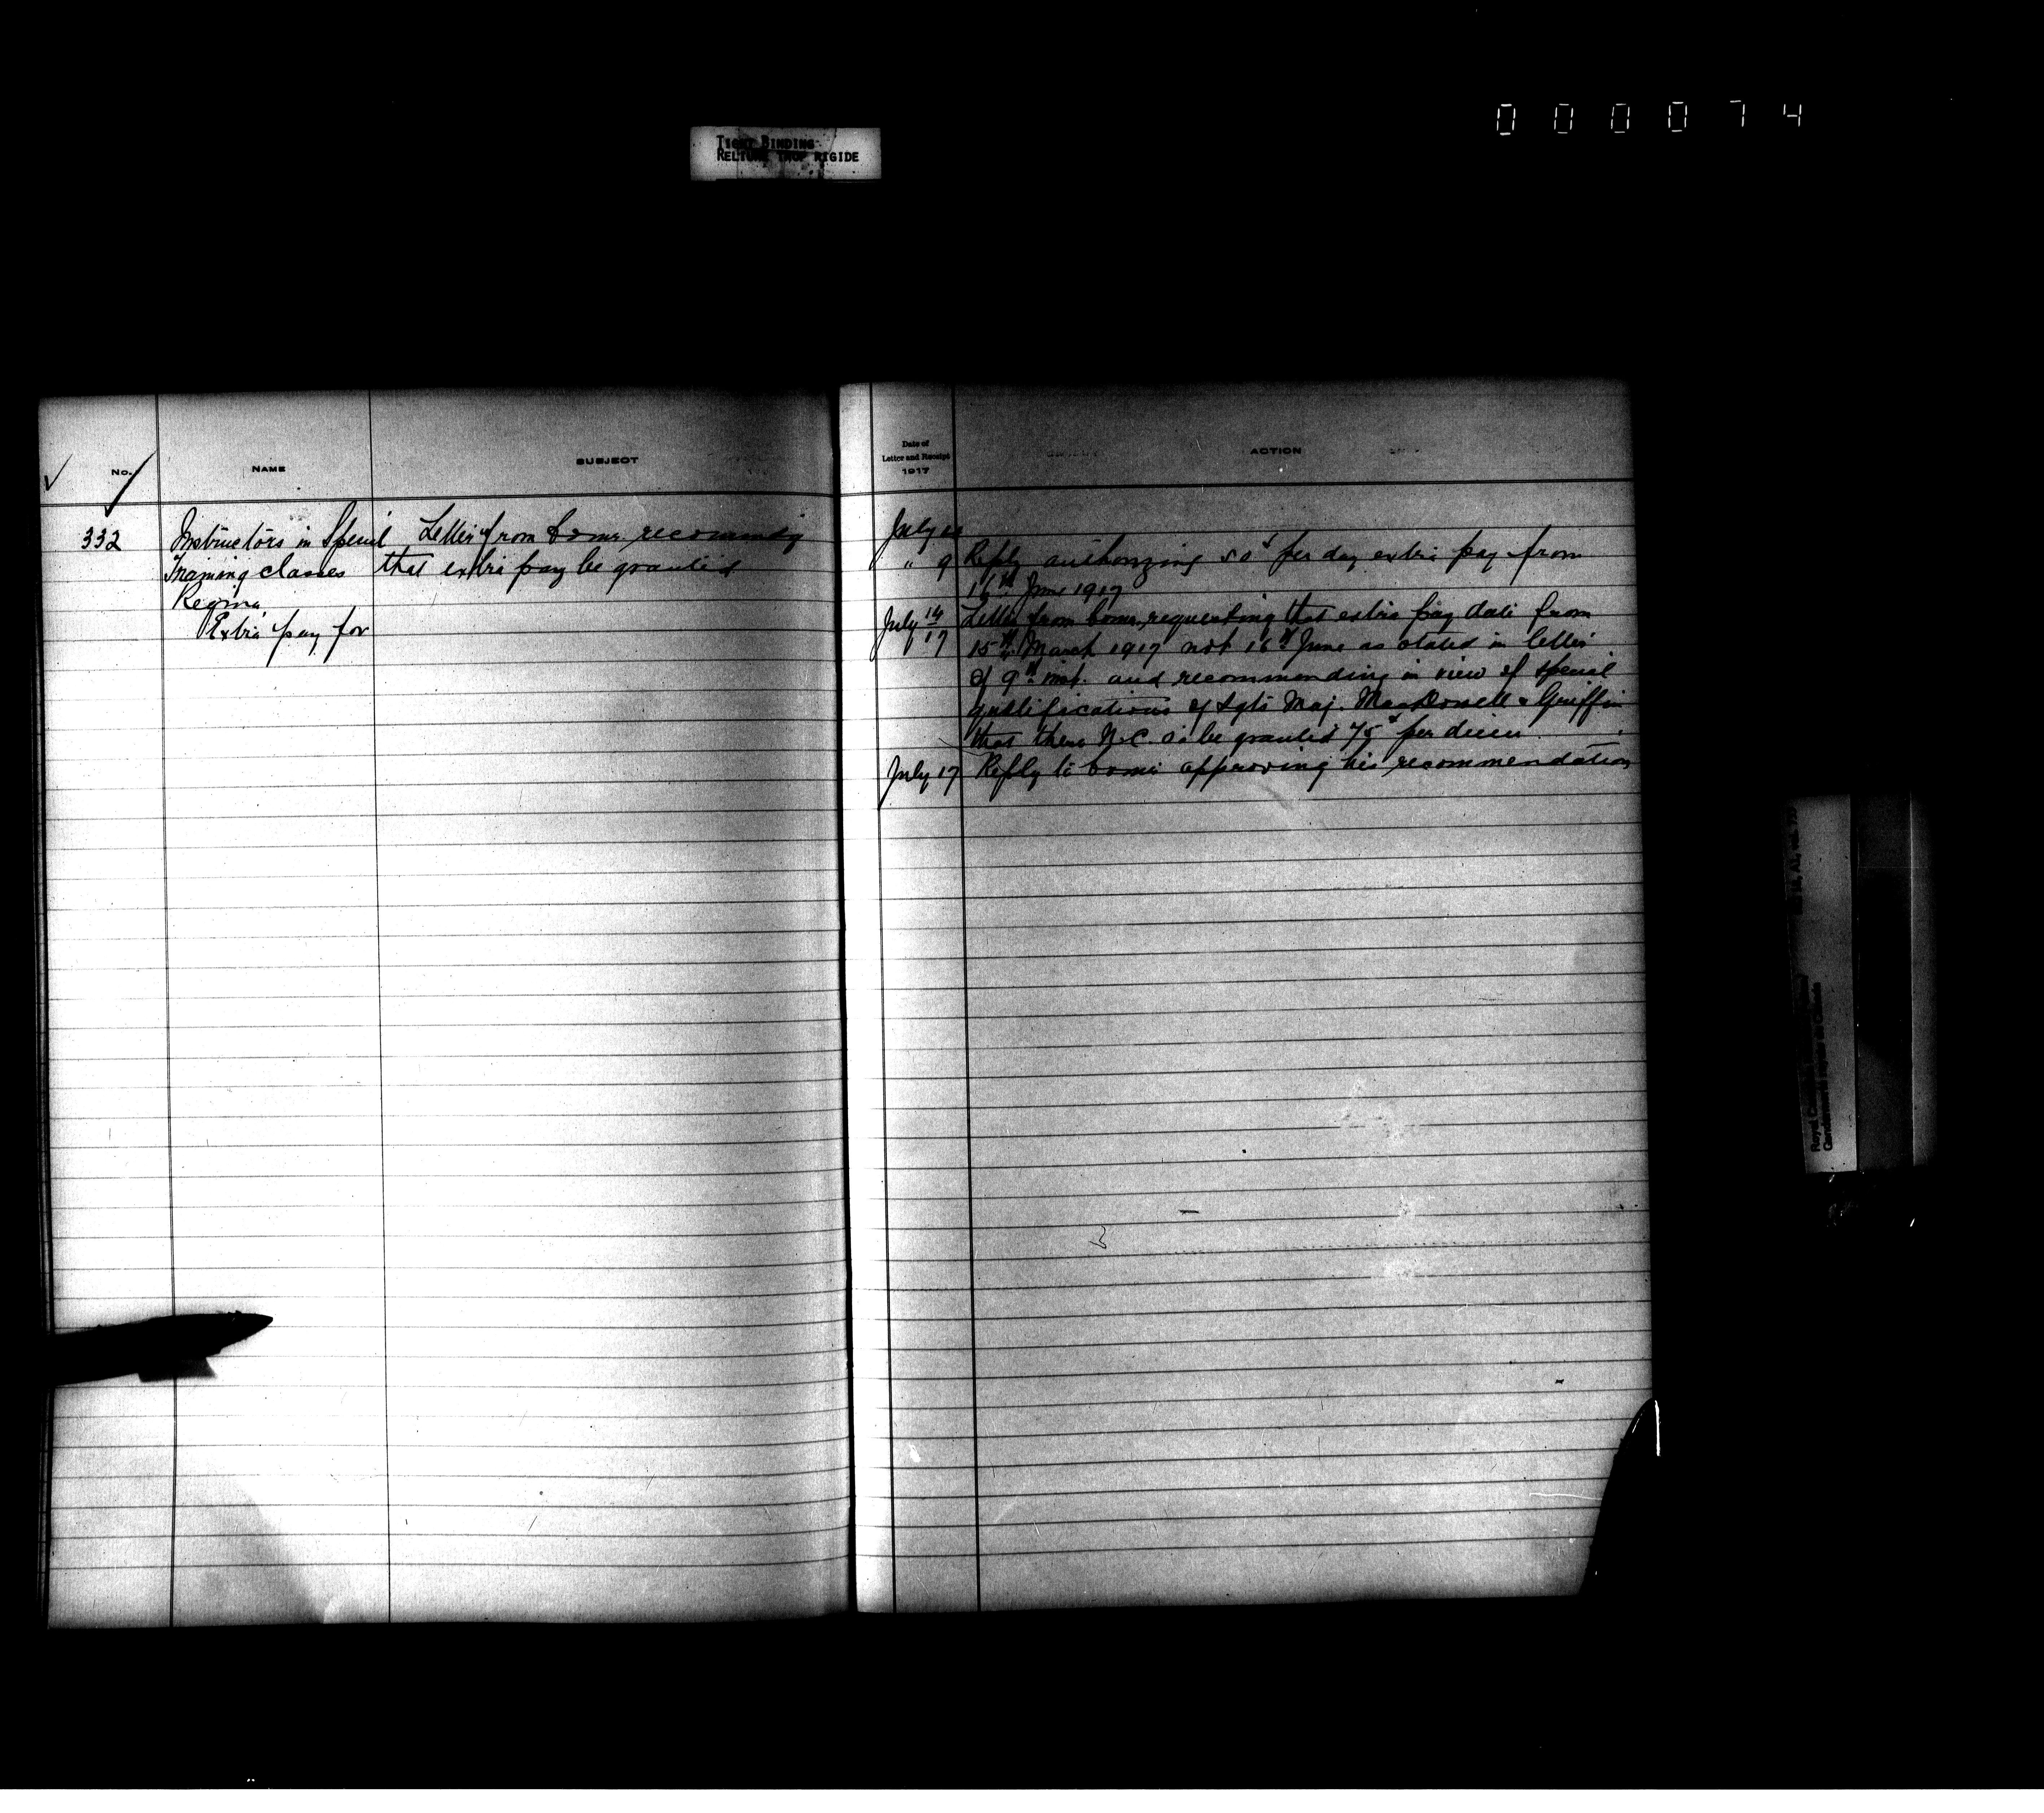 000074
TIGHT BINDING
RELIURE TROP RIGIDE
No.
NAME
SUBJECT
332
Instructors in Special
Training classes
Regina
Extra pay for
Letter from Comr. recommendg
that extra pay be granted
Date of
Letter and Receipt
1917
ACTION
July
" 9 Reply authorizing 50¢ per day extra pay from
16th June 1917
July 14 Letter from Comr. requesting that extra pay date from
17 15th March 1917 not 16th June as stated in letter
of 9th inst. and recommending in view of special
qualifications of Sgts Maj. MacDowell & Griffin
that these N.C.O's be granted 75¢ per diem
July 17 Reply to Comr approving his recommendation